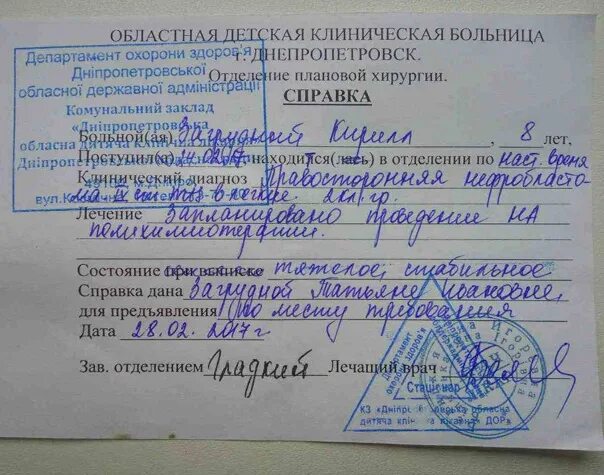 ОБЛАСТНАЯ ДЕТСКАЯ КЛИНИЧЕСКАЯ БОЛЬНИЦА
г. ДНЕПРОПЕТРОВСК.
Отделение плановой хирургии.
СПРАВКА
Департамент охорони здоров'я
Дніпропетровської
обласної державної адміністрації
Комунальний заклад
«Дніпропетровська
обласна дитяча клінічна
Дніпропетровської
49100 м.Дніпро
вул.
Больной(ая) Загрудний Кирилл, 8 лет,
Поступил(а) 14.02.17 находится (лась) в отделении по наст. время
Клинический диагноз Правосторонняя нефробласто-
ма IV ст. в легкие. 2 кл. гр.
Лечение Запланировано проведение НА
полихимиотерапии.
Состояние при выписке тяжелое, стабильное
Справка дана Загрудной Татьяне Ивановне,
для предъявления По месту требования
Дата 28.02.2017 г.
Зав. отделением Гладкий Лечащий врач
Департамент
охорони здоров'я
Стаціонар
КЗ «Дніпропетровська обласна
дитяча клінічна лікарня» ДОР»
Ігорівна